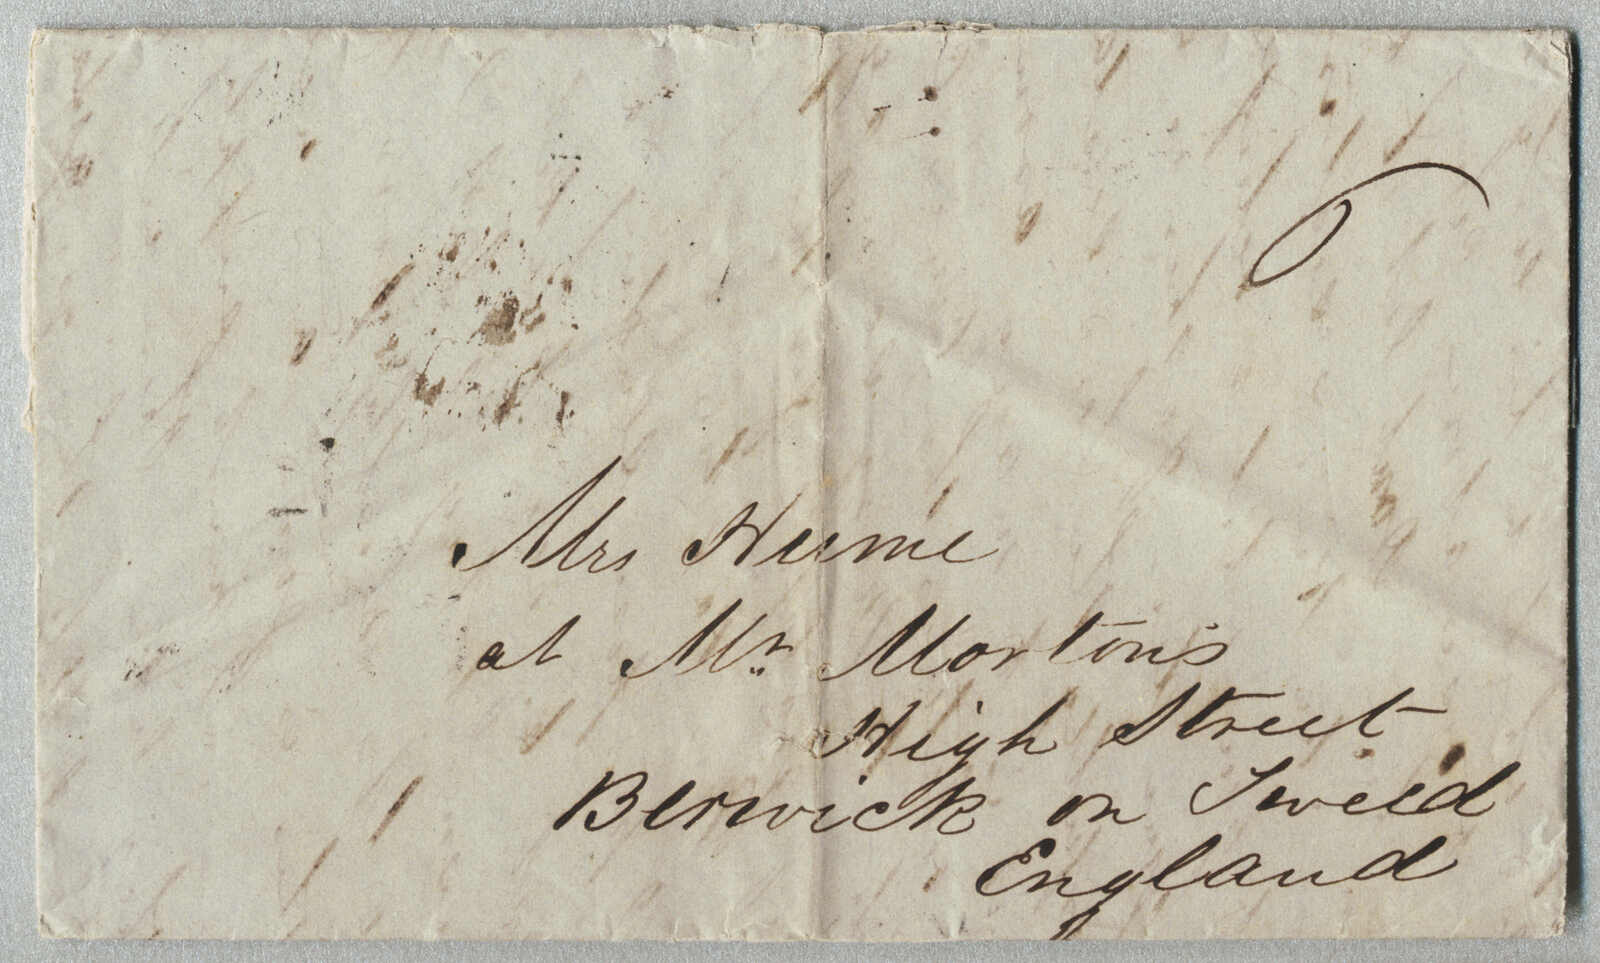 6
Mrs Hume
at Mr. Morton's
High Street
Berwick on Tweed
England